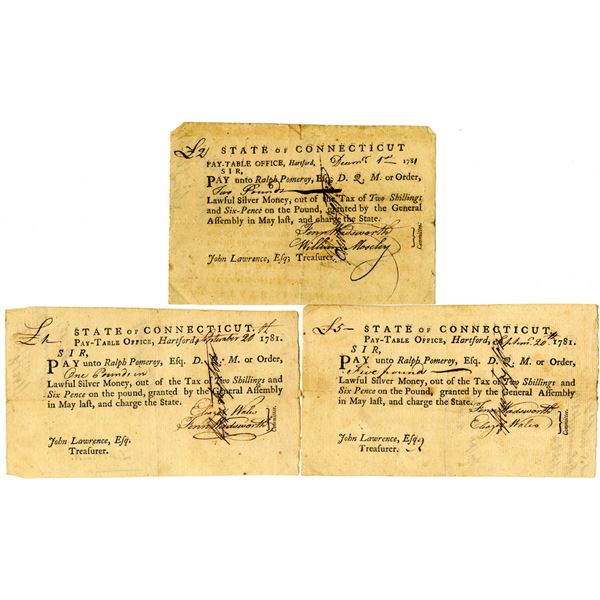 £2 STATE OF CONNECTICUT
PAY-TABLE OFFICE, Hartford, Decemr 1st 1781
SIR,
PAY unto Ralph Pomeroy, Esq; D. Q. M. or Order,
Two Pounds
Lawful Silver Money, out of the Tax of Two Shillings
and Six-Pence on the Pound, granted by the General
Assembly in May last, and charge the State.
Fenn Wadsworth
William Moseley
Committee.
John Lawrence, Esq; Treasurer.
£1 STATE OF CONNECTICUT,
PAY-TABLE OFFICE, Hartford, September 20th 1781.
SIR,
PAY unto Ralph Pomeroy, Esq. D. Q. M. or Order,
One Pound in
Lawful Silver Money, out of the Tax of Two Shillings and
Six Pence on the pound, granted by the General Assembly
in May last, and charge the State.
Eleazr Wales
Fenn Wadsworth
Committee.
John Lawrence, Esq.
Treasurer.
£5- STATE OF CONNECTICUT,
PAY-TABLE OFFICE, Hartford, Septemr 20th 1781.
SIR,
PAY unto Ralph Pomeroy, Esq. D. Q. M. or Order,
Five pound
Lawful Silver Money, out of the Tax of Two Shillings and
Six Pence on the pound, granted by the General Assembly
in May last, and charge the State.
Fenn Wadsworth
Eleazr Wales
Committee.
John Lawrence, Esq.
Treasurer.